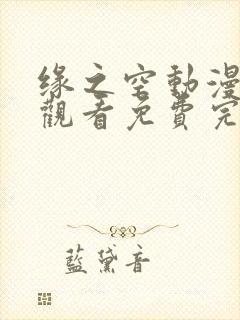 缘之空動漫
觀看免費完
藍黛音